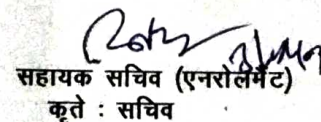 सहायक सचिव (एनरोलमेंट)
कृते : सचिव